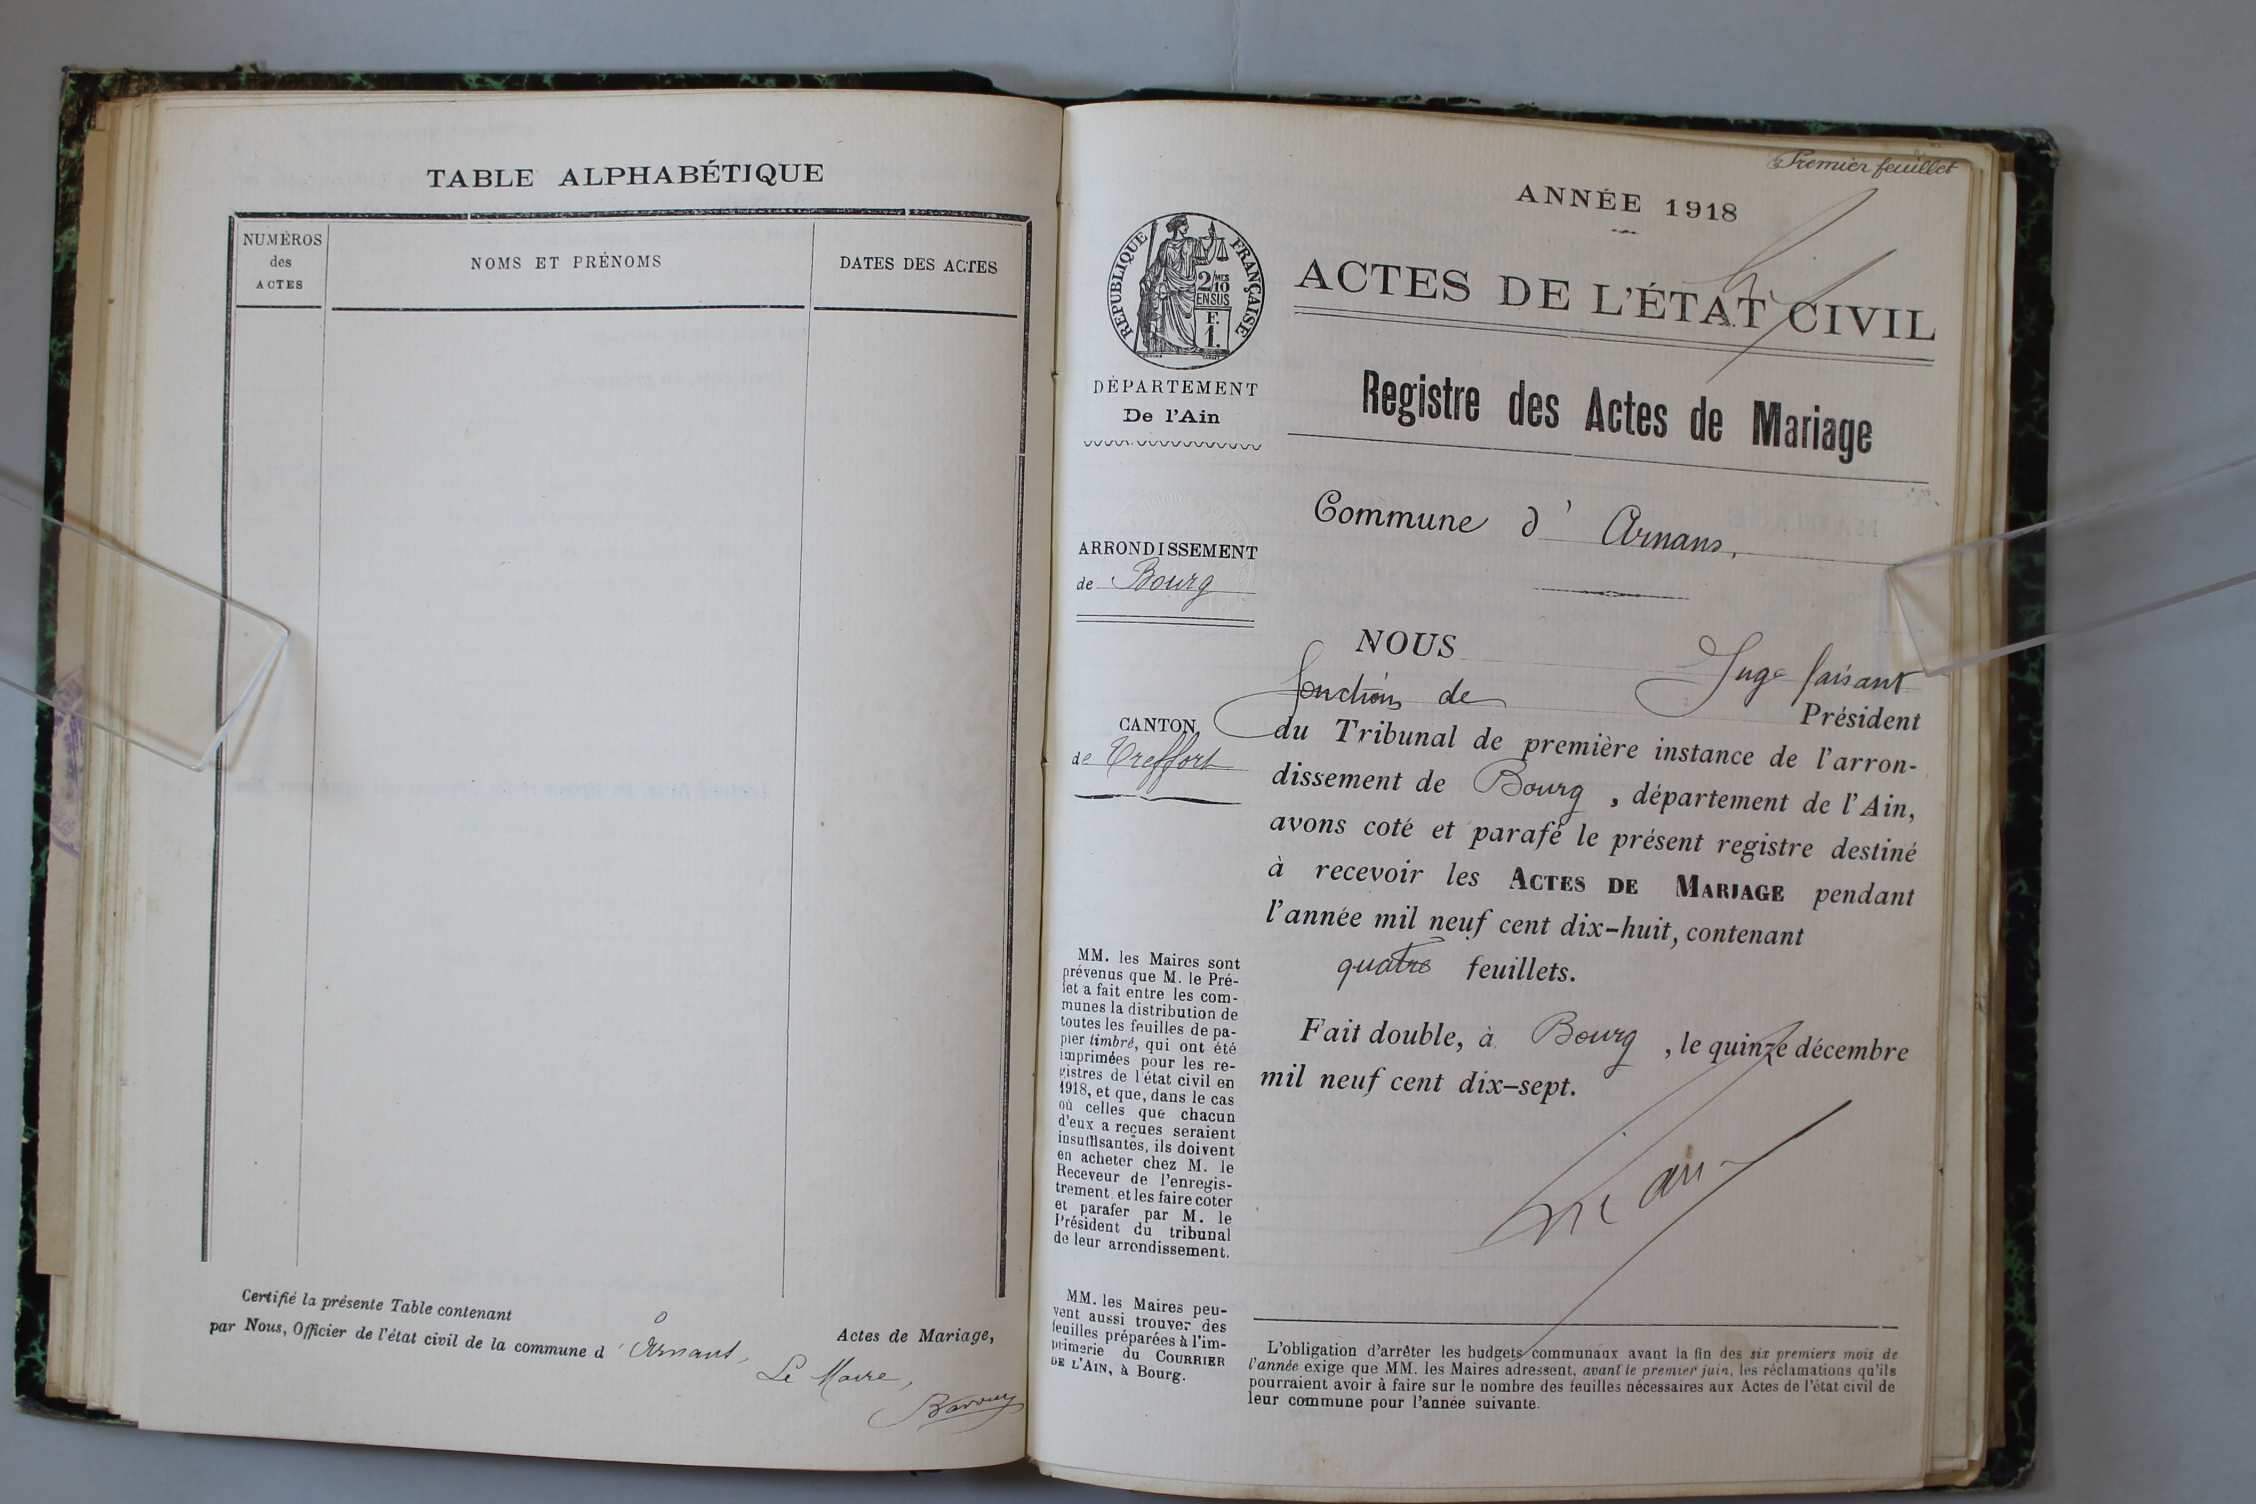 TABLE ALPHABÉTIQUE
NUMÉROS
des
ACTES
NOMS ET PRÉNOMS
DATES DES ACTES
Certifié la présente Table contenant 0 Actes de Mariage,
par Nous, Officier de l'état civil de la commune d'Arnans,
Le Maire,
Premier feuillet
ANNÉE 1918
RÉPUBLIQUE FRANÇAISE
2/MES
10
EN SUS
F.
1.
ACTES DE L'ÉTAT CIVIL
DÉPARTEMENT
De l'Ain
Registre des Actes de Mariage
Commune d'Arnans,
ARRONDISSEMENT
de Bourg
CANTON
de Treffort
NOUS Juge faisant
fonctions de Président
du Tribunal de première instance de l'arron-
dissement de Bourg, département de l'Ain,
avons coté et parafé le présent registre destiné
à recevoir les ACTES DE MARIAGE pendant
l'année mil neuf cent dix-huit, contenant
quatre feuillets.
Fait double, à Bourg, le quinze décembre
mil neuf cent dix-sept.
MM. les Maires sont
prévenus que M. le Pré-
fet a fait entre les com-
munes la distribution de
toutes les feuilles de pa-
pier timbré, qui ont été
imprimées pour les re-
gistres de l'état civil en
1918, et que, dans le cas
où celles que chacun
d'eux a reçues seraient
insuffisantes, ils doivent
en acheter chez M. le
Receveur de l'enregis-
trement et les faire coter
et parafer par M. le
Président du tribunal
de leur arrondissement.
MM. les Maires peu-
vent aussi trouver des
feuilles préparées à l'im-
primerie du COURRIER
DE L'AIN, à Bourg.
L'obligation d'arrêter les budgets communaux avant la fin des six premiers mois de
l'année exige que MM. les Maires adressent, avant le premier juin, les réclamations qu'ils
pourraient avoir à faire sur le nombre des feuilles nécessaires aux Actes de l'état civil de
leur commune pour l'année suivante.